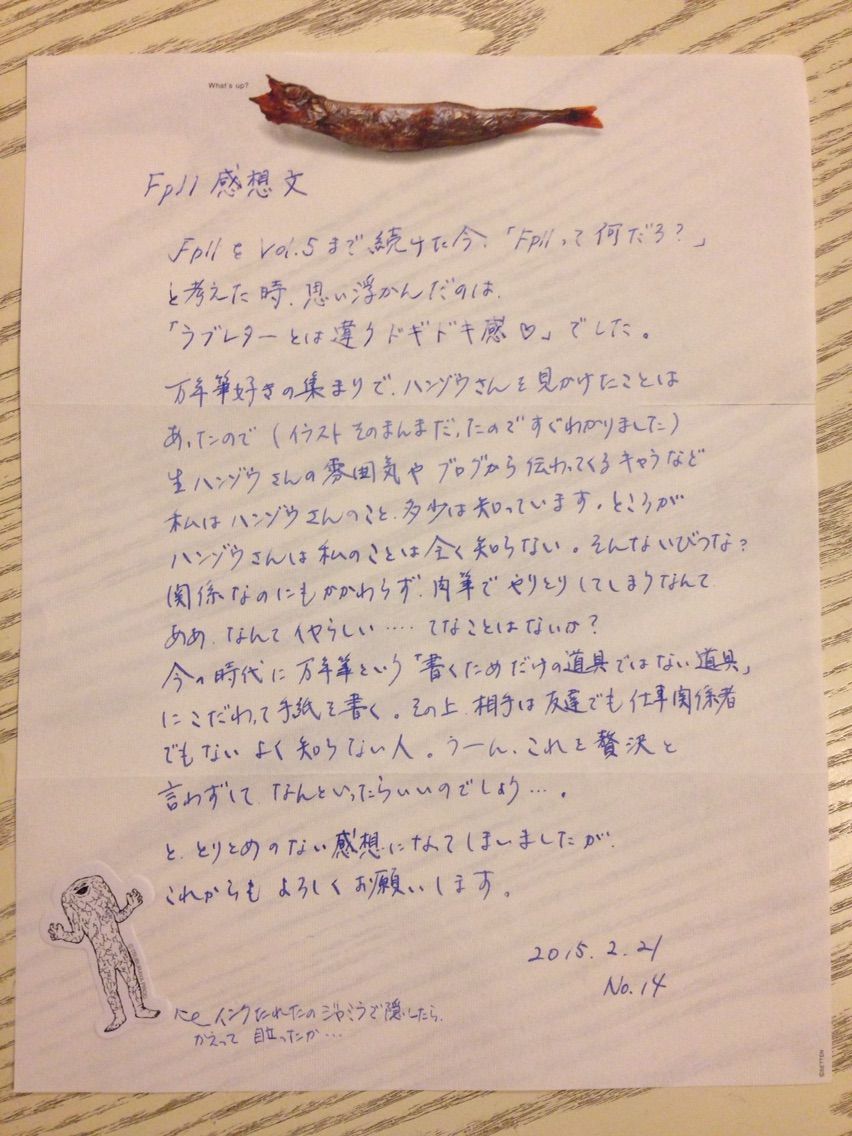 What's up?
Fp11 感想文
Fp11を Vol.5まで続けた今、「Fp11って何だろ?」
と考えた時、思い浮かんだのは、
「ラブレターとは違うドギドキ感♡」でした。
万年筆好きの集まりで、ハンゾウさんを見かけたことは
あったので(イラストそのまんまだったのですぐわかりました)
生ハンゾウさんの雰囲気やブログから伝わってくるキャラなど
私はハンゾウさんのこと、多少は知っています。ところが
ハンゾウさんは私のことは全く知らない。そんないびつな?
関係なのにもかかわらず、肉筆でやりとりしてしまうなんて
ああ、なんてイヤらしい……てなことはないか?
今の時代に万年筆という「書くためだけの道具ではない道具」
にこだわって手紙を書く。その上、相手は友達でも仕事関係者
でもないよく知らない人。うーん、これを贅沢と
言わずして、なんといったらいいのでしょう…。
と、とりとめのない感想になってしまいましたが、
これからもよろしくお願いします。
2015.2.21
No.14
インクたれたのジャミラで隠したら、
かえって目立ったか…
©DETTEN